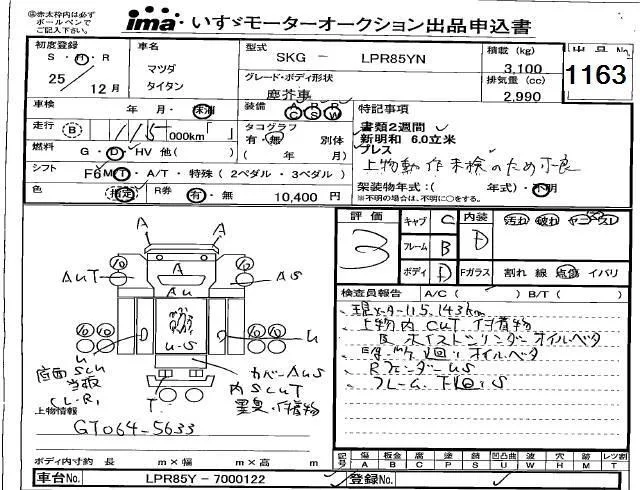 ◎赤太枠内は必ず
ボールペンで
ご記入下さい。
ima いすゞモーターオークション出品申込書
初度登録 S・H・R 25 12月
車名 マツダ タイタン
型式 SKG - LPR85YN
積載 (kg) 3,100
出品No 1163
グレード・ボディ形状 塵芥車
排気量 (cc) 2,990
車検 年 月・抹消
装備 A C A S R W
特記事項
走行 B 115 000km「 」
タコグラフ 有・無 別体 ( 年 月)
書類2週間
新明和 6.0立米
プレス
上物動作未検のため不良
燃料 G・D・HV 他( )
シフト F6 MT・A/T・特殊 (2ペダル・3ペダル)
色 (指定) R券 有・無 10,400 円
架装物年式:( 年式)・不明
※不明の場合は、不明に○をする。
評価 3
キャブ C
フレーム B
ボディ D
内装 D
汚れ 破れ ヤニ コゲ スレ
Fガラス 割れ 線 点傷 イバリ
検査員報告 A/C( ) B/T( )
現メーター115,143km
上物内 CUT 付着物
オイルベタ
オイルベタ
Rフェンダー US
フレーム、下回りS
A
A
A
AU
AUT
AS
U-S
U
U
底面 SCU
当板
(L-R)
T
カバーAUS
内 SCUT
異臭・付着物
上物情報
GT064-5633
ボディ内寸約 長 m×幅 m×高 m
記号 傷 A 板金 B 腐 C 塗 P 錆 S 凹凸曲 U 波 W 穴 H 跡 M 切 T レンズ割
車台No. LPR85Y - 7000122 登録No.